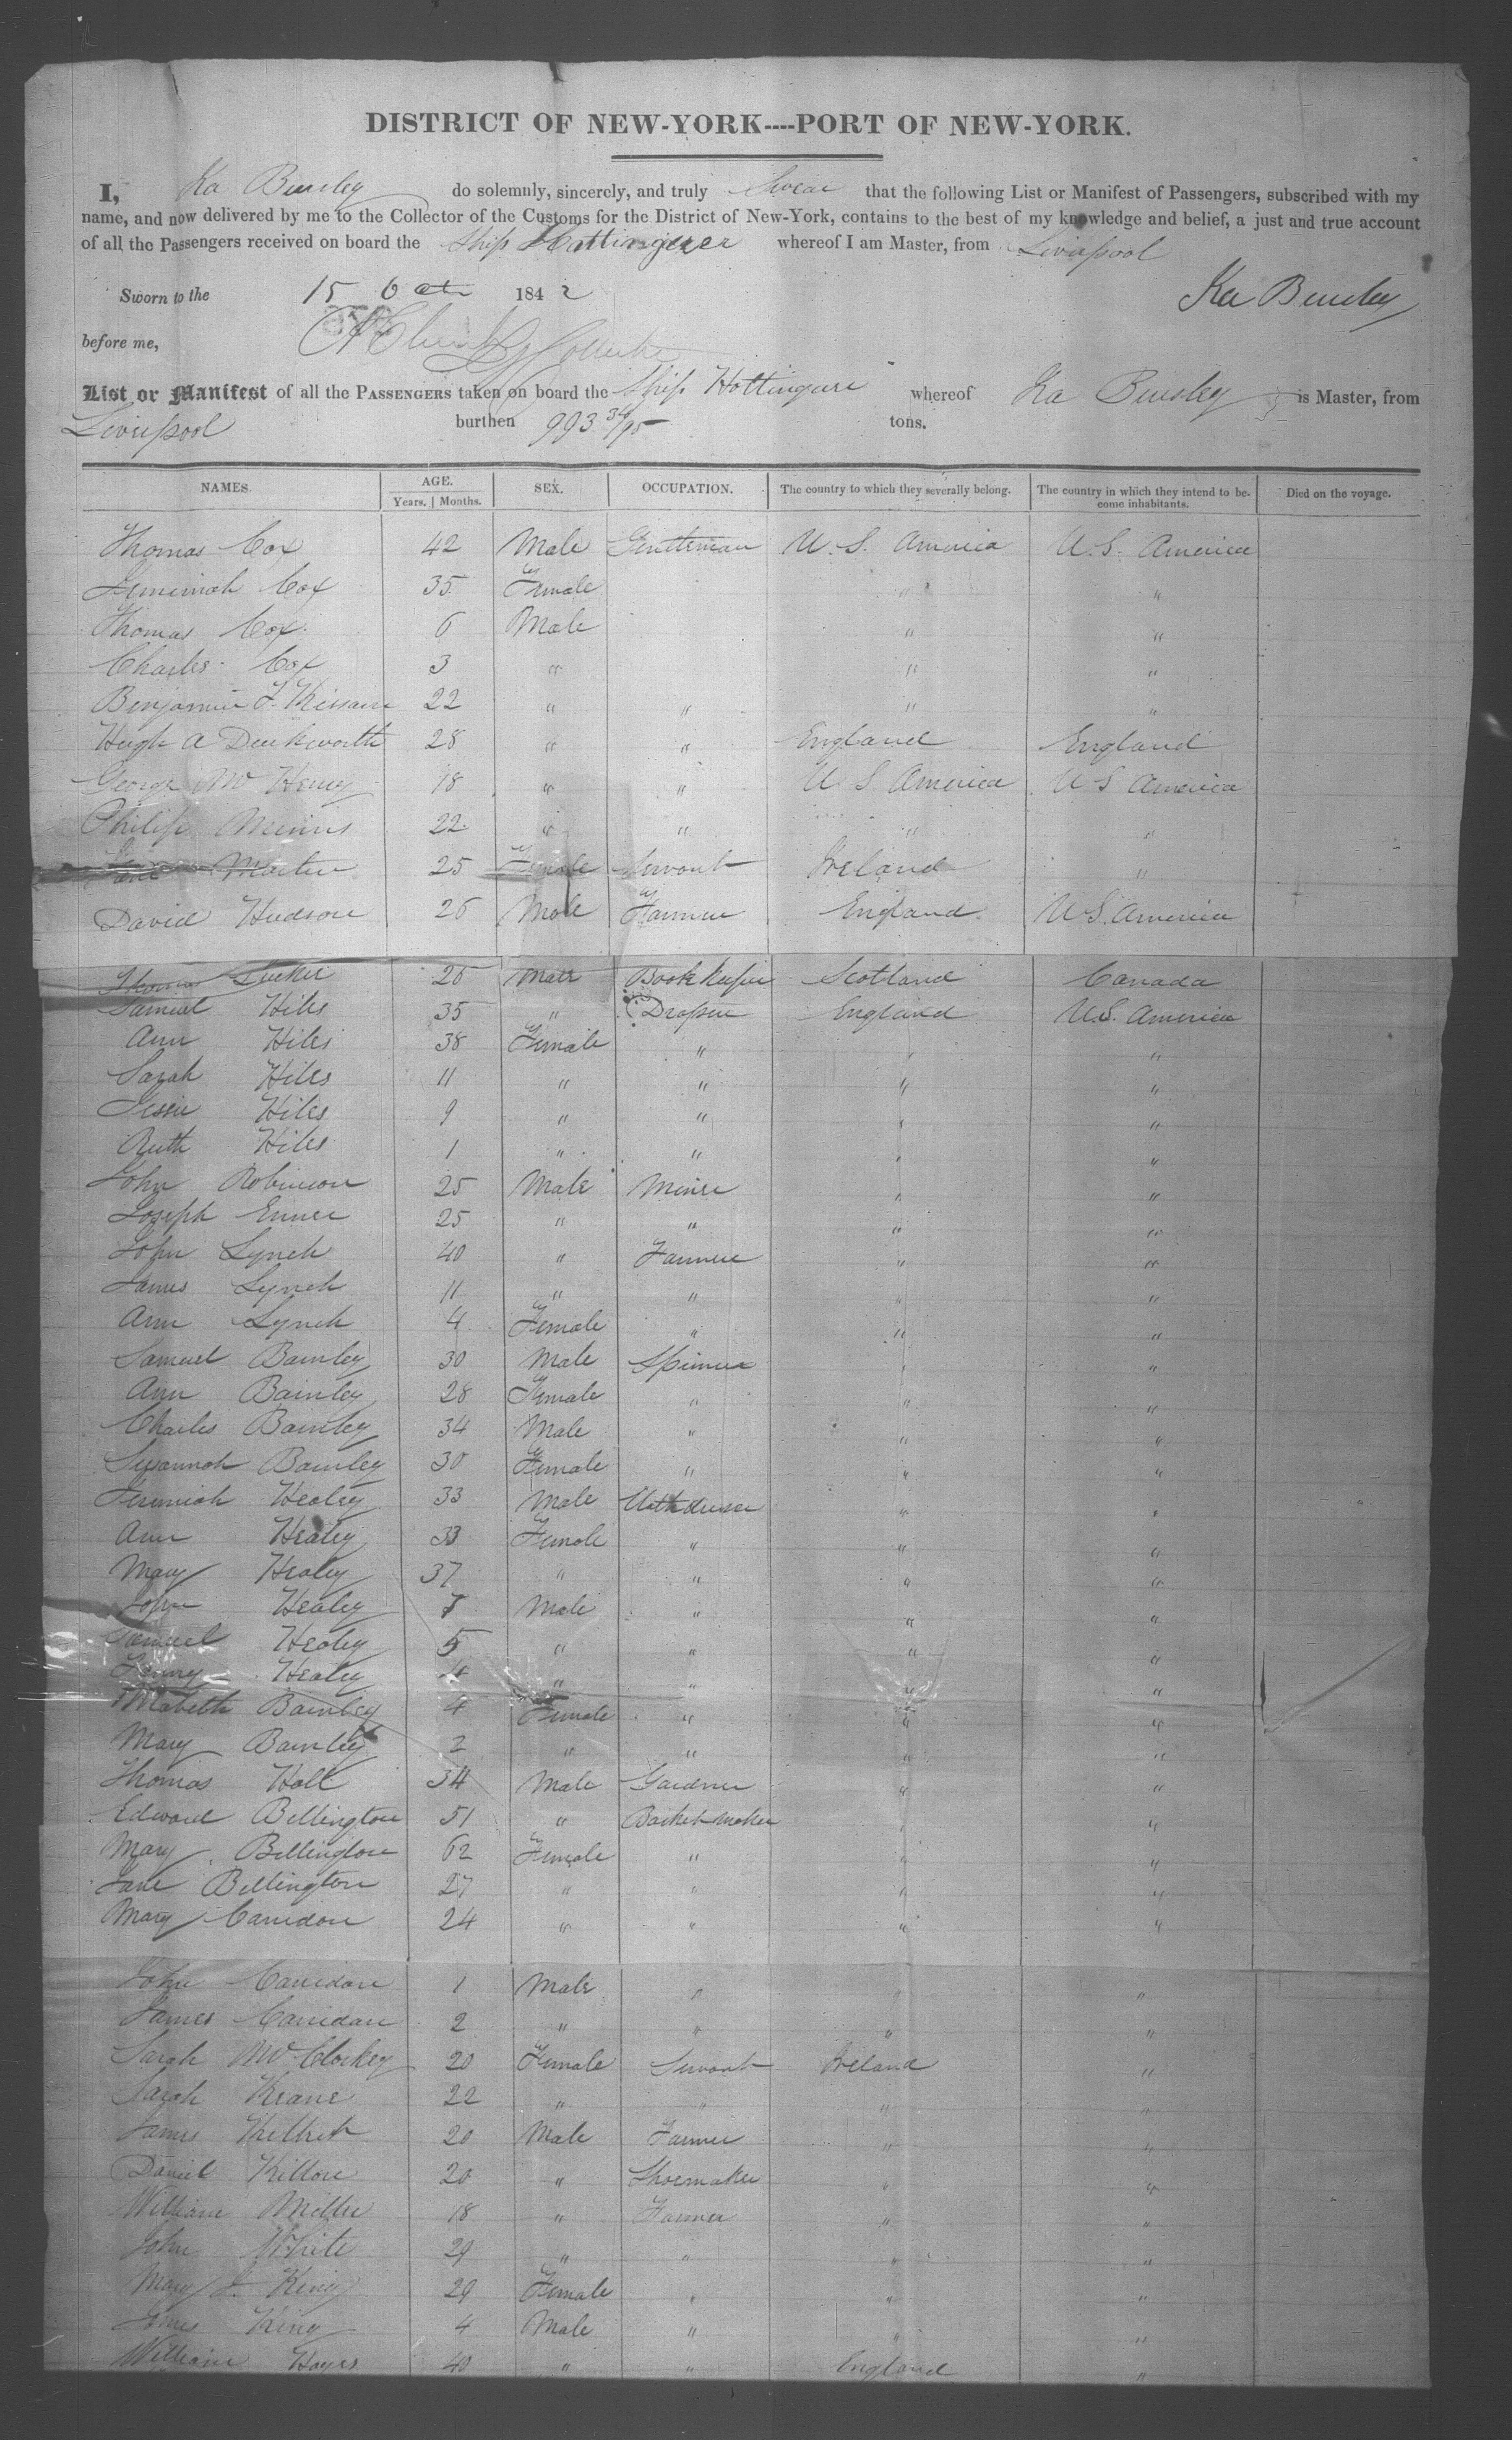 DISTRICT OF NEW-YORK----PORT OF NEW-YORK.
I, Ira Bursley do solemnly, sincerely, and truly Swear that the following List or Manifest of Passengers, subscribed with my
name, and now delivered by me to the Collector of the Customs for the District of New-York, contains to the best of my knowledge and belief, a just and true account
of all the Passengers received on board the Ship Hottinguer whereof I am Master, from Liverpool
Sworn to the 15 Oct 1842 Ira Bursley
before me,
List or Manifest of all the PASSENGERS taken on board the Ship Hottinguer whereof Ira Bursley is Master, from
Liverpool burthen 993 34/95 tons.
NAMES. AGE. SEX. OCCUPATION. The country to which they severally belong. The country in which they intend to be- Died on the voyage.
Years. | Months. come inhabitants.
Thomas Cox 42 Male Gentleman U. S. America U. S. America
Jemimah Cox 35 Female " "
Thomas Cox 6 Male " "
Charles Cox 3 " " "
Benjamin F. 22 " " " "
Hugh A Duckworth 28 " " England England
George McHenry 18 " " U S America U S America
Philip Minis 22 " " " "
Jane Martin 25 Female Servant Ireland "
David Hudson 26 Male Farmer England U S. America
Thomas 25 Male Bookkeeper Scotland Canada
Samuel Hiles 35 " Draper England U.S. America
Ann Hiles 38 Female " " "
Sarah Hiles 11 " " " "
Jessie Hiles 9 " " " "
Ruth Hiles 1 " " " "
John Robinson 25 Male Miner " "
Joseph 25 " " " "
John Lynch 40 " Farmer " "
James Lynch 11 " " " "
Ann Lynch 4 Female " " "
Samuel Bamley 30 Male Spinner " "
Ann Bamley 28 Female " " "
Charles Bamley 34 Male " " "
Susannah Bamley 30 Female " " "
Jeremiah Healey 33 Male " "
Ann Healey 33 Female " " "
Mary Healey 37 " " " "
John Healey 7 Male " " "
Samuel Healey 5 " " " "
Healey 4 " " " "
Bamley 4 Female " " "
Mary Bamley 2 " " " "
Thomas Holt 34 Male Gardner " "
Edward Bellington 51 " Basket Maker " "
Mary Bellington 62 Female " " "
Jane Bellington 27 " " " "
Mary 24 " " " "
John 1 Male " " "
James 2 " " " "
Sarah McCloskey 20 Female Servant Ireland "
Sarah Keane 22 " " " "
James 20 Male Farmer " "
Daniel Killon 20 " Shoemaker " "
William Miller 18 " Farmer " "
John White 29 " " " "
Mary J. King 29 Female " " "
James King 4 Male " " "
William Hayes 40 " " England "